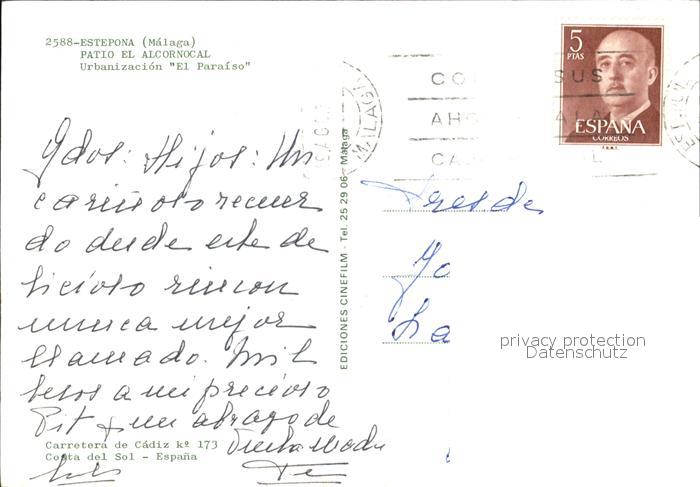 2588-ESTEPONA (Málaga)
PATIO EL ALCORNOCAL
Urbanización "El Paraíso"
5
PTAS
ESPAÑA
CORREOS
F.N.M.T.
MALAGA
CO SUS
AHO
CA L
EDICIONES CINEFILM - Tel. 25 29 06 - Málaga
Qdos: Hijos: Un
cariñoso recuer
do desde este de
licioso rincon
nunca mejor
llamado. Mil
besos a mi precioso
Pit y un abrazo de
madre
Carretera de Cádiz kº 173
Costa del Sol - España
privacy protection
Datenschutz